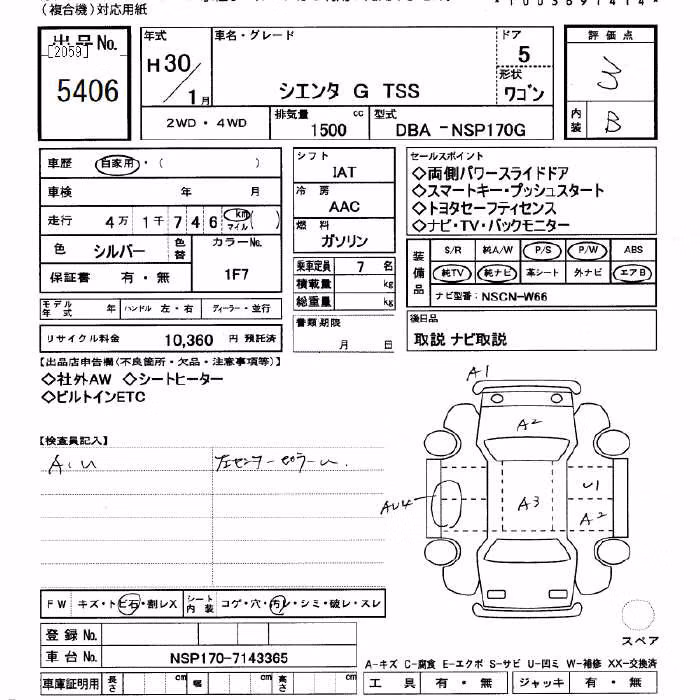 (複合機)対応用紙
*1003691414*
出品No.
[2059]
5406
年式
H30/1月
車名・グレード
シエンタ G TSS
ドア
5
形状
ワゴン
評価点
3
内装
B
2WD・4WD
排気量
1500 cc
型式
DBA -NSP170G
車歴 自家用・( )
車検 年 月
走行 4万1千746 km マイル( )
色 シルバー 色替
カラーNo.
1F7
保証書 有・無
モデル年式 年 ハンドル 左・右 ディーラー・並行
リサイクル料金 10,360 円 預託済
シフト
IAT
冷房
AAC
燃料
ガソリン
乗車定員 7 名
積載量 kg
総重量 kg
書類期限
月 日
セールスポイント
◇両側パワースライドドア
◇スマートキー・プッシュスタート
◇トヨタセーフティセンス
◇ナビ・TV・バックモニター
装備品
S/R 純A/W P/S P/W ABS
純TV 純ナビ 革シート 外ナビ エアB
ナビ型番: NSCN-W66
後日品
取説 ナビ取説
【出品店申告欄(不良箇所・欠品・注意事項等)】
◇社外AW ◇シートヒーター
◇ビルトインETC
【検査員記入】
A.U
左センターピラーU.
A1
A2
A3
U1
A2
AU4
スペア
FW キズ・トビ石・割レX
シート内装 コゲ・穴・汚レ・シミ・破レ・スレ
登録No.
車台No. NSP170-7143365
車庫証明用 長さ cm 幅 cm 高さ cm
A-キズ C-腐食 E-エクボ S-サビ U-凹ミ W-補修 XX-交換済
工具 有・無 ジャッキ 有・無